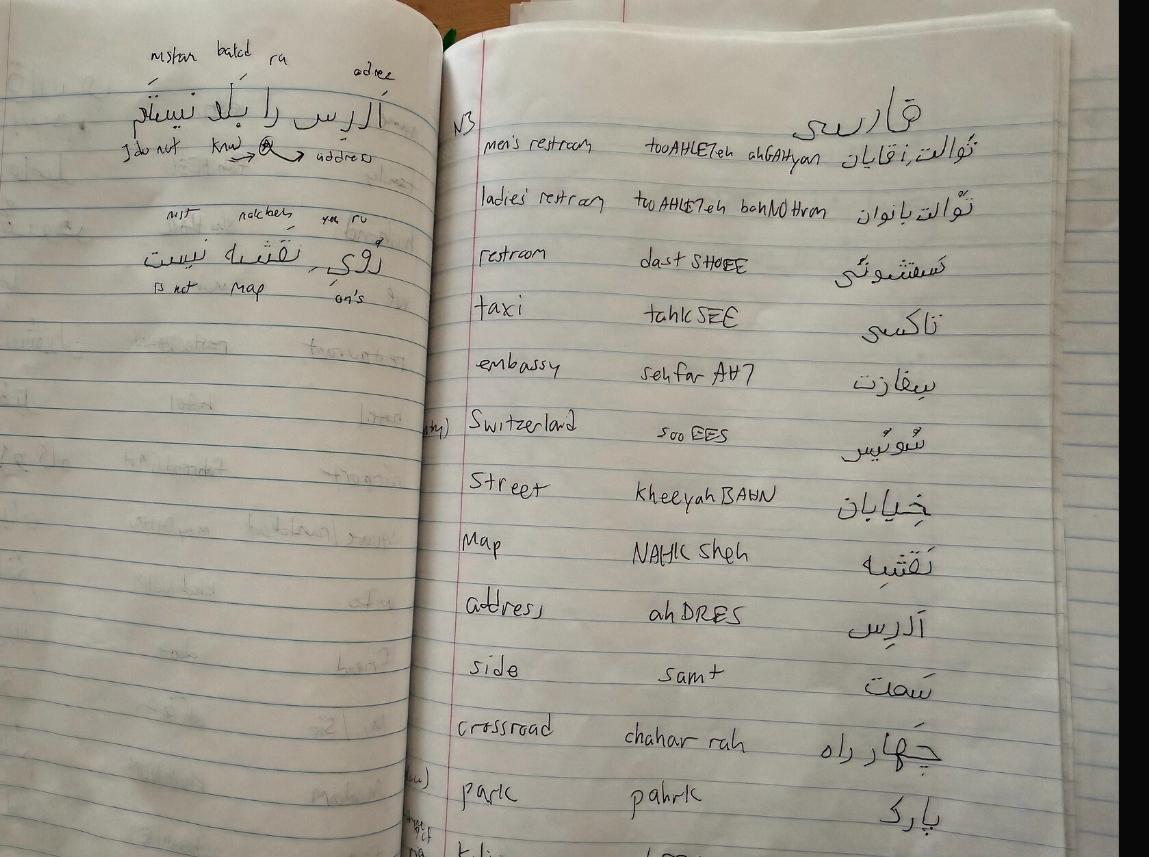 mstan balad ra adres
آدرِس را بَلَد نیستَم
I do not know address
nist nakcheh ru
رُویِ نَقشِه نیست
is not map on's
N3
فارسی
men's restroom tooAHLETeh ahGAHyan توالت آقایان
ladies' restroom tooAHLETeh bahNOHvan توالت بانوان
restroom dast SHOEE
taxi tahkSEE تاکسی
embassy sehfar AHT
Switzerland soo EES سوئیس
Street kheeyahBAHN خیابان
Map NAHK sheh نَقشِه
address ahDRES آدرِس
side samt سَمت
crossroad chahar rah چَهار راه
park pahrk پارک